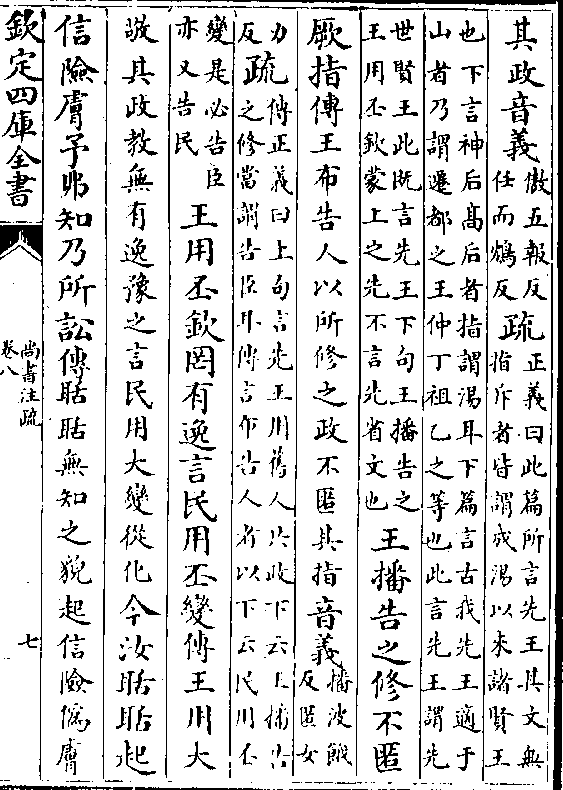 其政音義傲五報反任而鴆反疏正義曰此篇所言先王其文無指斥者皆謂成湯以來諸賢王
也下言神后高后者指謂湯耳下篇言古我先王適于山者乃謂遷都之王仲丁祖乙之等也此言先王謂先
世賢王此既言先王下句王播告之王用丕欽蒙上之先不言先省文也王播告之修不匿
厥指傳王布告人以所修之政不匿其指音義播波餓反匿女
力反疏傳正義曰上句言先王用舊人共政下云王播告之修當謂告臣耳傳言布告人者以下云民用丕
變是必告臣亦又告民王用丕欽罔有逸言民用丕變傳王用大
敬其政教無有逸豫之言民用大變從化今汝聒聒起
信險膚予弗知乃所訟傳聒聒無知之貌起信險偽膚
欽定四庫全書
尚書注疏
卷八
七